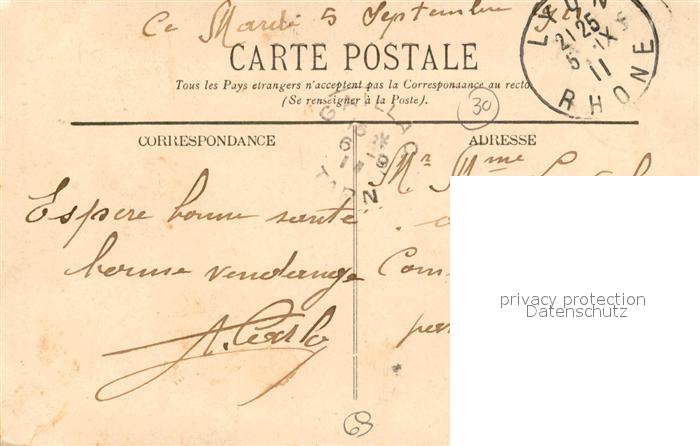 Ce Mardi 5 Septembre
CARTE POSTALE
Tous les Pays etrangers n'acceptent pas la Correspondance au recto
(Se renseigner à la Poste).
30
21 25
5 -IX
11
RHONE
CORRESPONDANCE
ADRESSE
GAILLAC
TARN
Mr Mme
Espere bonne santé
bonne vendange
Com
par
privacy protection
Datenschutz
69